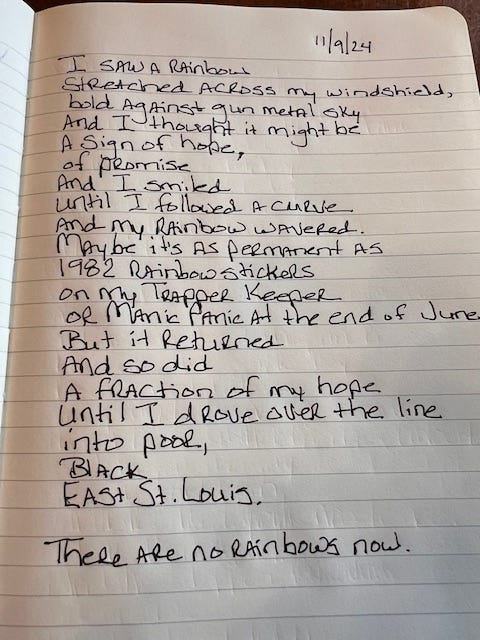 11/9/24
I SAW A RAinbow
Stretched ACROSS my windshield,
bold AgAinst gun metal sky
And I thought it might be
A Sign of hope,
of promise
And I smiled
until I followed A CURVE
And my RAinbow wAvered.
Maybe it's AS permAnent AS
1982 RAinbow stickers
on my TRAppeR KeepeR
oR MAnic PAnic At the end of June
But it Returned
And so did
A fRACtion of my hope
until I dRove over the line
into pooR,
BLACK
EAST St. Louis.
There ARE no RAinbows now.